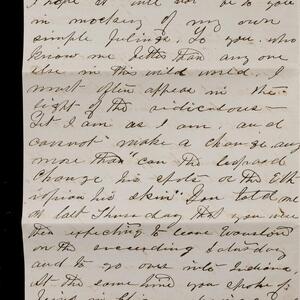 I hope it will not be to you
in mockery of my own
simple feelings. To you who
know me better than any one
else in this wide world. I
must often appear in the
light of the ridiculous —
Yet I am as I am, and
cannot "make a change any
more than" can the leopard
change his spots or the
Ethiopian his skin" You told me
at last Thursday that you were
then expecting to leave Evanston
on the succeeding Saturday
and to go over into Indiana
At the same time you spoke of